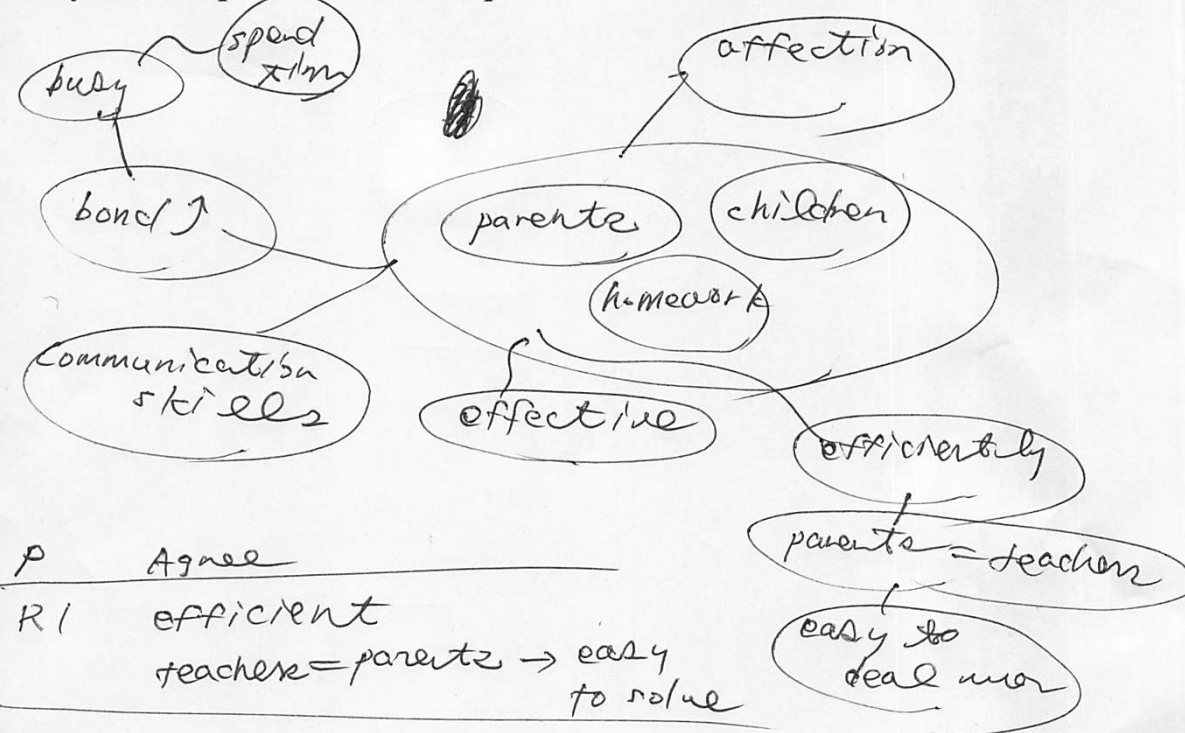 spend
time
busy
affection
bond ↑
parents
children
homework
communication
skills
effective
efficiently
parents = teachers
easy to
deal
P Agree
R1 efficient
teachers = parents → easy
to solve